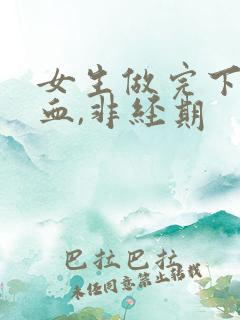 女生做完下
血,非经期
巴拉巴拉
未经同意禁止转载